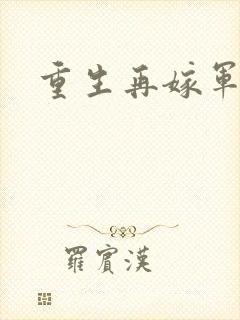 重生再嫁軍
羅賓漢